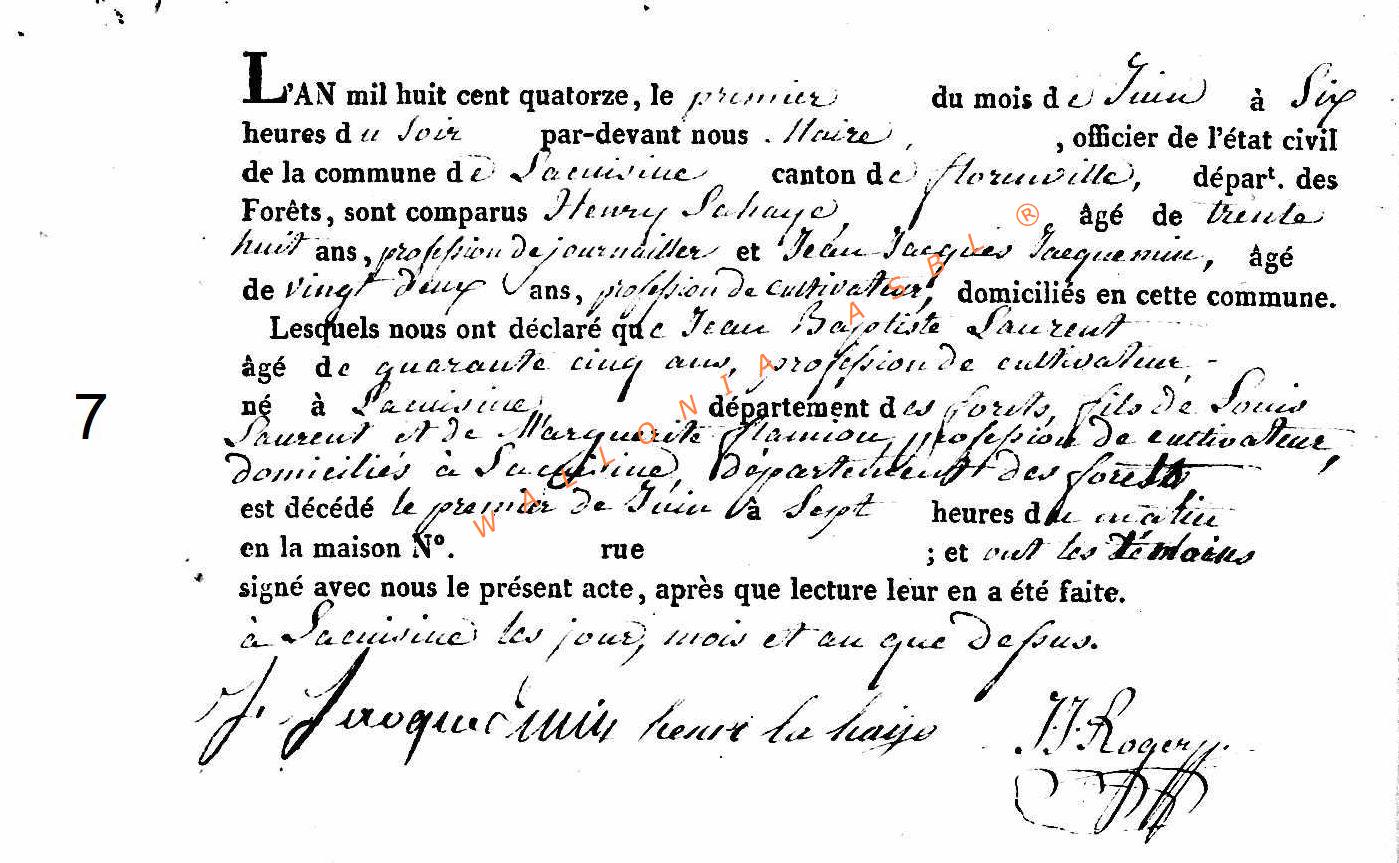 L'AN mil huit cent quatorze, le premier du mois de Juin à Six
heures du Soir par-devant nous Maire, , officier de l'état civil
de la commune de Lacuisine canton de florenville, départ. des
Forêts, sont comparus Henry Lahaye, âgé de trente
huit ans, profession de journailler et Jean Jacques Jacquemin, âgé
de vingt deux ans, profession de cultivateur, domiciliés en cette commune.
Lesquels nous ont déclaré que Jean Baptiste Laurent
âgé de quarante cinq ans, profession de cultivateur,
7
né à Lacuisine département des forets, fils de Louis
Laurent et de Marguerite flamion, profession de cultivateur,
domiciliés à Lacuisine, département des forets
est décédé le premier de Juin à Sept heures du matin
en la maison N°. rue ; et ont les témoins
signé avec nous le présent acte, après que lecture leur en a été faite.
à Lacuisine les jour, mois et an que dessus.
J. Jacquemin henri la haye J.J. Rogery
WALLONIA ASBL ®